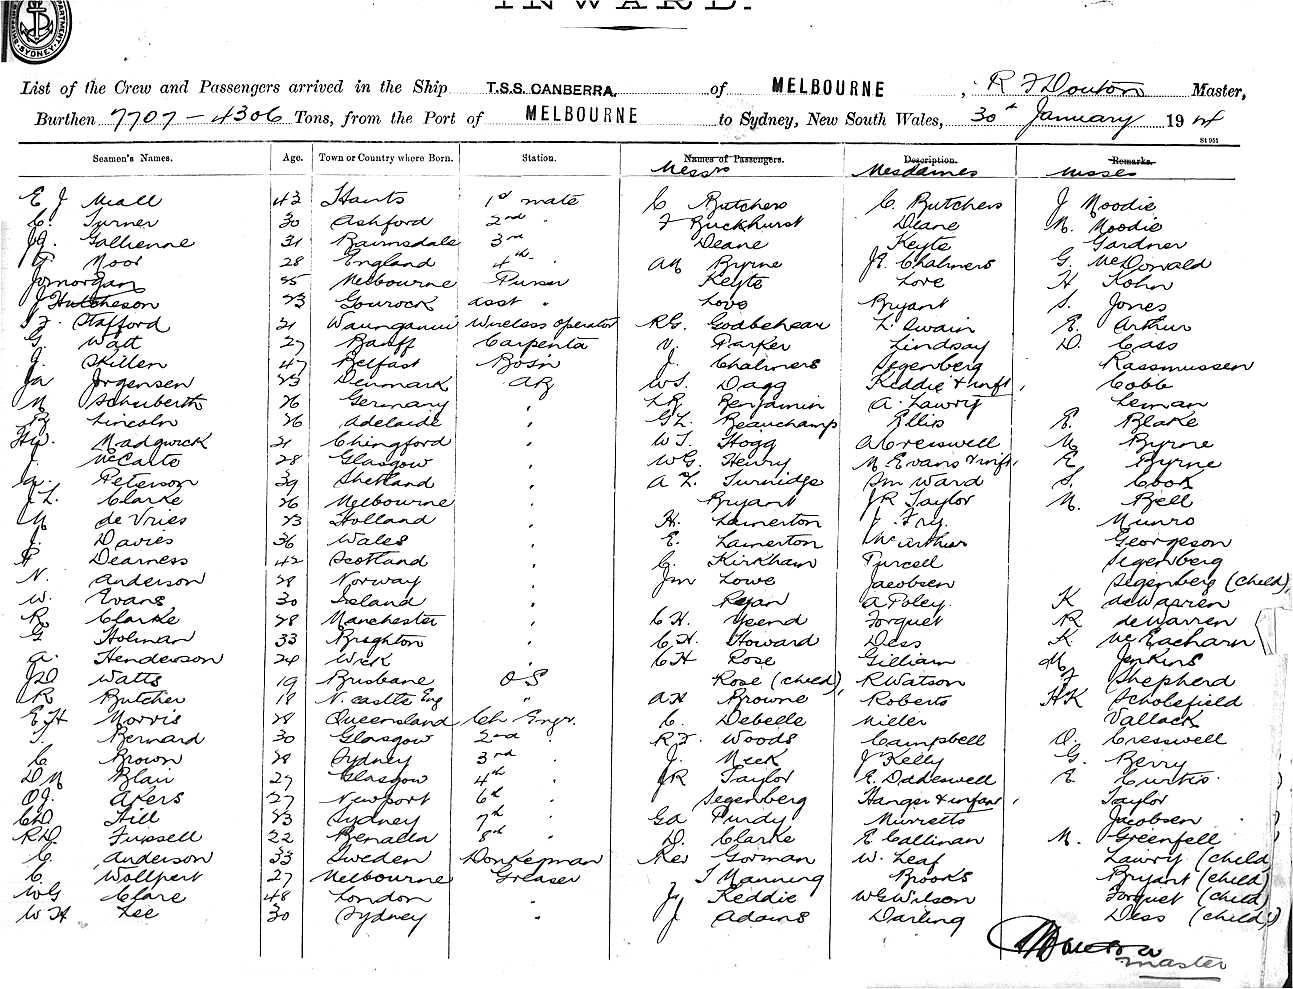 INWARD.
SYDNEY
List of the Crew and Passengers arrived in the Ship T.S.S. CANBERRA. of MELBOURNE, R F Douton Master,
Burthen 7707 – 4306 Tons, from the Port of MELBOURNE to Sydney, New South Wales, 30th January 1924
St 951
Seamen's Names. Age. Town or Country where Born. Station. Names of Passengers. Description. Remarks.
Messrs Mesdames Misses
E J Neall 43 Hants 1st mate C Butchers C. Butchers J Moodie
C. Turner 30 Ashford 2nd " F Buckhurst Deane M. Moodie
JG. Gallienne 31 Bairnsdale 3rd Deane Keyte Gardner
Moor 28 England 4th " AM Byrne JE Chalmers G. McDonald
J Morgan 35 Melbourne Purser Keyte Love H Kohn
J Hutcheson 23 Gourock asst " Love Bryant S. Jones
F. Stafford 21 Waunganui Wireless operator RG. Godbehear L. Swain E. Arthur
G. Watt 27 Banff Carpenta V. Parker Lindsay D. Cass
J. Skillen 47 Belfast Bosn J. Chalmers Segenberg Rassmussen
Ja Jorgensen 23 Denmark AB WS. Dagg Keddie & inft, Cobb
M Schuberth 26 Germany " LR Benjamin A. Lawry Leman
B Lincoln 26 Adelaide " GL Beauchamp Ellis E. Blake
HW. Madgwick 21 Chingford " WT. Hogg A Cresswell M Byrne
J. McCaito 28 Glasgow " WG. Henry M Evans & inft, E Byrne
Peterson 39 Shetland " A L Turnidge Sm Ward S. Cook
JL. Clarke 26 Melbourne " Bryant JR Taylor M. Bell
M de Vries 23 Holland " H. Lamerton J. Fry. Munro
J. Davies 36 Wales " E. Lamerton McArthur Georgeson
P Dearness 42 Scotland " G. Kirkham Purcell Segenberg
N. Anderson 28 Norway " Jm Lowe Jacobsen Segenberg (child),
W. Evans 30 Island " Ryan A Poley. K deWarren
R. Clarke 28 Manchester " CH. Yeend Forquet R deWarren
G Holman 33 Brighton " CH. Howard Dess K McEacharn
A. Henderson 24 Wick " CH Rose Gilliam M Jenkins
JD Watts 19 Brisbane OS Rose (child), R Watson J Shepherd
R Butcher 18 N. castle Eng " AH Browne Roberts HK Scholefield
EH Morris 28 Queensland Ch Engr. C. Debelle Miller Vallack
T. Bernard 30 Glasgow 2nd " RF. Woods Campbell O. Cresswell
C Brown 28 Sydney 3rd " J. Meek J Kelly G. Berry
DM Blair 27 Glasgow 4th " JR Taylor E. Dadeswell E. Curtis.
OJ. Akers 27 Newport 6th " Segenberg Hanger & infant, Taylor
CD Hill 23 Sydney 7th " GA Purdy Murretts Jacobsen
RD. Fussell 22 Benalla 8th " D. Clarke E Callinan M. Greenfell
C. Anderson 33 Sweden Donkeyman Rev Gorman W. Leaf Lawry (child)
C Wollpert 27 Melbourne Greaser T Manning Brooks Bryant (child)
WG Clare 48 London " J. Keddie WG Wilson Forquet (child)
WH Lee 30 Sydney " J. Adams Darling Dess (child)
R F Douton
master